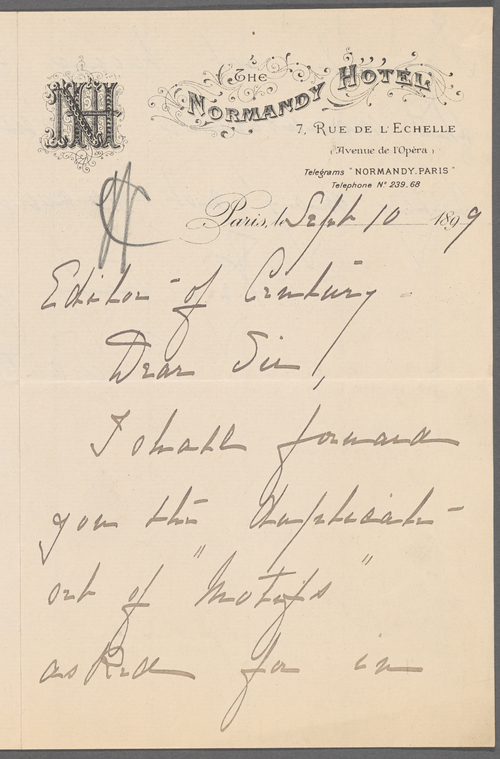 NH
THE
NORMANDY HOTEL
7, RUE DE L'ECHELLE
(Avenue de l'Opéra)
Telegrams "NORMANDY.PARIS"
Telephone No 239.68
Paris, le Sept 10 1899
Editor of Century -
Dear Sir,
I shall forward
you the duplicate
set of "Motifs"
asked for in